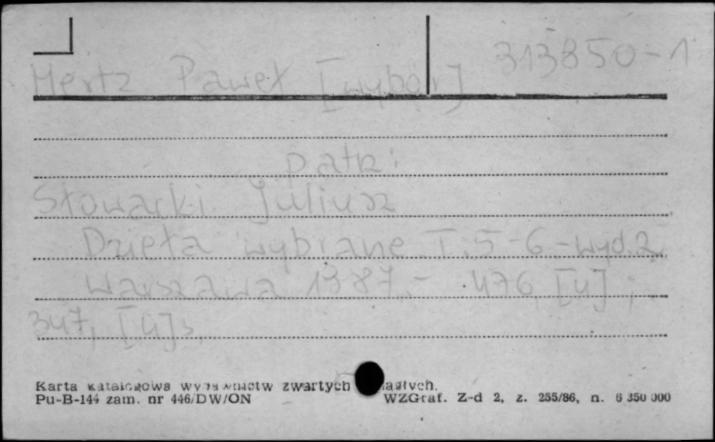 313850-1
Hertz Paweł [wybór]
patrz:
Słowacki Juliusz
Dzieła wybrane T. 5-6 - wyd. 2
Warszawa 1987.- 476, [4] ;
347, [4] s.
Karta katalogowa wydawnictw zwartych
Pu-B-144 zam. nr 446/DW/ON WZGraf. Z-d 2, z. 255/86, n. 6 350 000